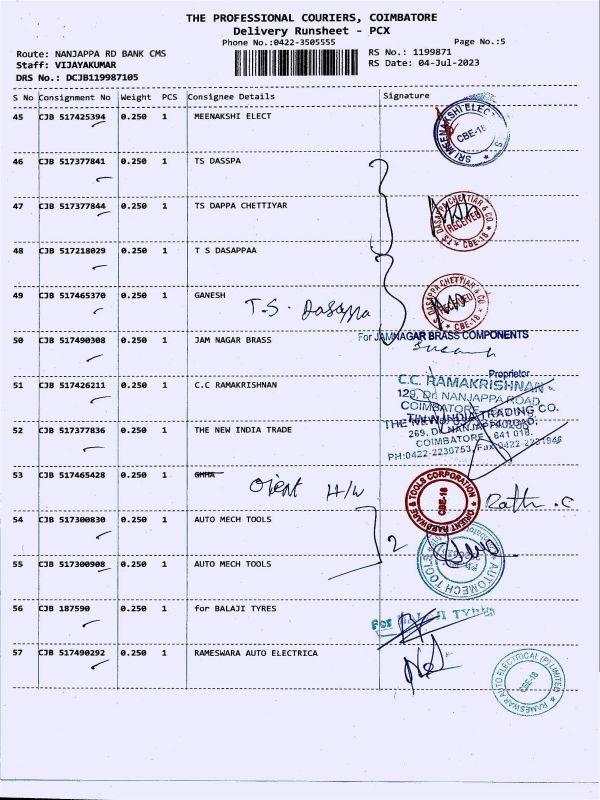 THE PROFESSIONAL COURIERS, COIMBATORE
Delivery Runsheet - PCX
Phone No.:0422-3505555
Page No.:5
Route: NANJAPPA RD BANK CMS
RS No.: 1199871
Staff: VIJAYAKUMAR
RS Date: 04-Jul-2023
DRS No.: DCJB119987105
S No Consignment No Weight PCS Consignee Details Signature
45 CJB 517425394 0.250 1 MEENAKSHI ELECT
SRI MEENAKSHI ELEC CBE-18
46 CJB 517377841 0.250 1 TS DASSPA
47 CJB 517377844 0.250 1 TS DAPPA CHETTIYAR
T.S. DASAPPA CHETTIAR & CO. RECEIVED CBE-18
48 CJB 517218029 0.250 1 T S DASAPPAA
49 CJB 517465370 0.250 1 GANESH
T.S. Dasappa
T.S. DASAPPA CHETTIAR & CO. RECEIVED CBE-18
50 CJB 517490308 0.250 1 JAM NAGAR BRASS
For JAMNAGAR BRASS COMPONENTS
Proprietor
51 CJB 517426211 0.250 1 C.C RAMAKRISHNAN
C.C. RAMAKRISHNAN
129, Dr. NANJAPPA ROAD,
COIMBATORE
52 CJB 517377836 0.250 1 THE NEW INDIA TRADE
THE NEW INDIA TRADING CO.
269, Dr. NANJAPPA ROAD,
COIMBATORE - 641 018.
PH:0422-2230753, Fax:0422-2231946
53 CJB 517465428 0.250 1 GMHA
Orient H/W
ORIENT HARDWARE & TOOLS CORPORATION CBE-18
54 CJB 517300830 0.250 1 AUTO MECH TOOLS
2
55 CJB 517300908 0.250 1 AUTO MECH TOOLS
AUTOMECH TOOLS
56 CJB 187590 0.250 1 for BALAJI TYRES
For BALAJI TYRES
57 CJB 517490292 0.250 1 RAMESWARA AUTO ELECTRICA
RAMESWAR AUTO ELECTRICAL (P) LIMITED CBE-18